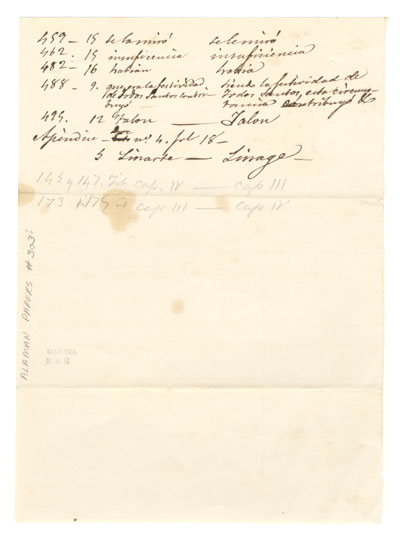 459 - 15 se la miró se le miró
462. 15 insuficiencia insuficiencia
482 - 16 habian habia
488 - 9. que era la festividad siendo la festividad de
de todos Santos todos Santos, esta circuns-
tancia contribuyó
495. 12 Talon — Jalon
Apéndice nº 4. fol 18 -
5 Linarte — Linage -
145 y 147. Tit cap. IV — cap III
173 175 cap III — cap IV
ALAMAN PAPERS # 303
GARCIA